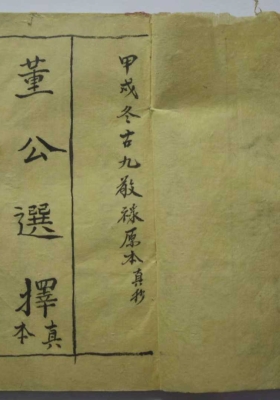 甲戌冬古九敬祿原本真抄
董公選擇真本